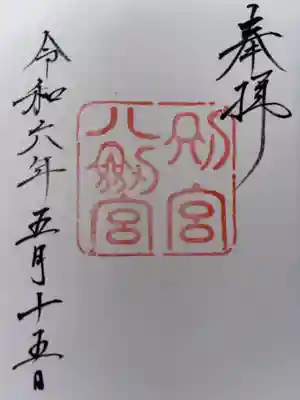 奉拝
別宮
八剱宮
令和六年五月十五日